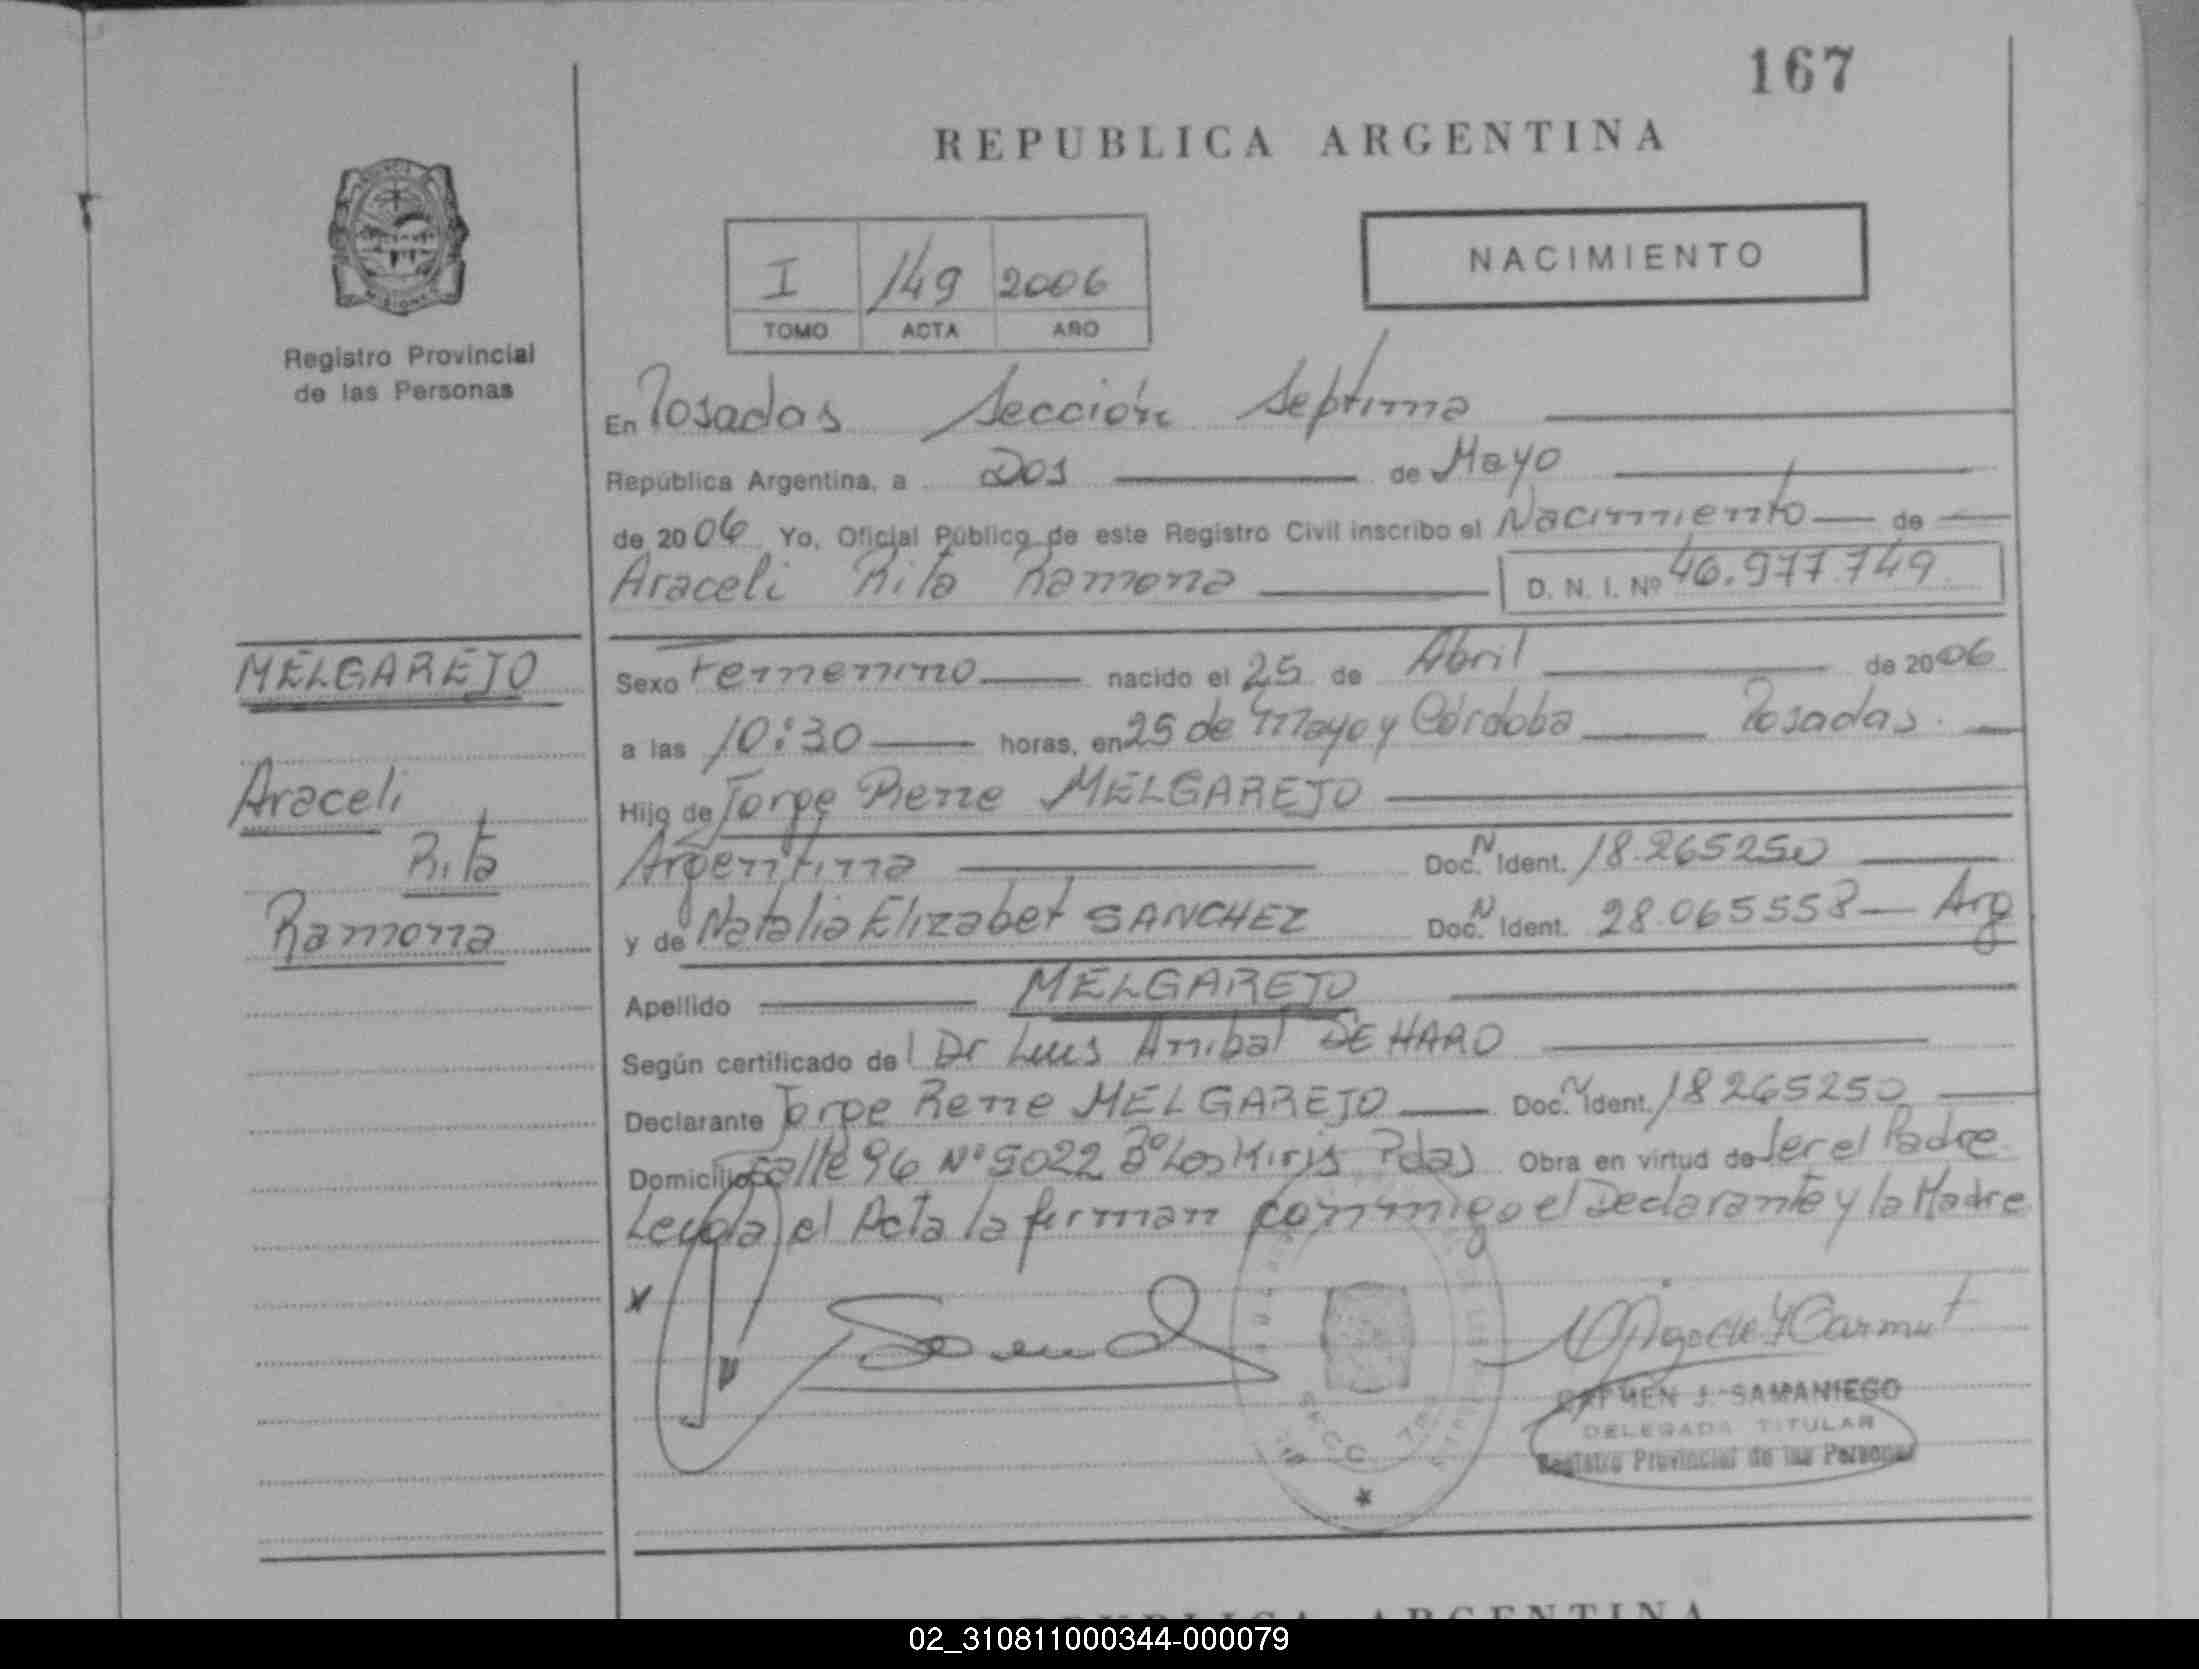 167
REPUBLICA ARGENTINA
I 149 2006
TOMO ACTA AÑO
NACIMIENTO
Registro Provincial
de las Personas
En Posadas Sección Septima
República Argentina, a Dos de Mayo
de 2006 Yo, Oficial Público de este Registro Civil inscribo el Nacimiento de
Araceli Rita Ramona D. N. I. Nº 46.977.749
MELGAREJO
Araceli
Rita
Ramona
Sexo Femenino nacido el 25 de Abril de 2006
a las 10:30 horas, en 25 de Mayo y Córdoba Posadas.
Hijo de Jorge Rene MELGAREJO
Argentina Doc. N Ident. 18.265250
y de Natalia Elizabet SANCHEZ Doc. N Ident. 28.065558 Arg
Apellido MELGAREJO
Según certificado del Dr Luis Anibal DE HARO
Declarante Jorge Rene MELGAREJO Doc. N Ident. 18265250
Domicilio Calle 96 Nº 5022 Bº Los Kiris Pdas Obra en virtud de Ser el Padre
Leyda el Acta la firman conmigo el Declarante y la Madre
CARMEN J. SAMANIEGO
DELEGADA TITULAR
Registro Provincial de las Personas
SECC. 7ma
REPUBLICA ARGENTINA
02_310811000344-000079